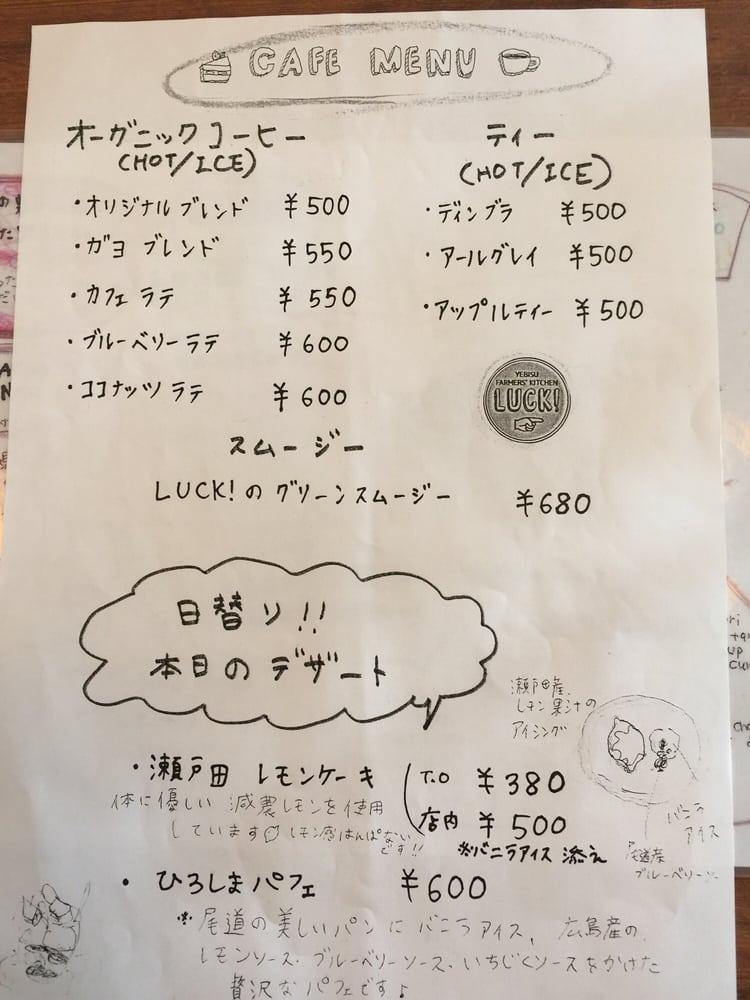 CAFE MENU
オーガニックコーヒー
(HOT/ICE)
・オリジナルブレンド ¥500
・ガヨ ブレンド ¥550
・カフェ ラテ ¥550
・ブルーベリーラテ ¥600
・ココナッツ ラテ ¥600
ティー
(HOT/ICE)
・ディンブラ ¥500
・アールグレイ ¥500
・アップルティー ¥500
YEBISU
FARMERS' KITCHEN
LUCK!
スムージー
LUCK!の グリーンスムージー ¥680
日替り!!
本日のデザート
瀬戸田産
レモン果汁の
アイシング
・瀬戸田 レモンケーキ
T.O ¥380
店内 ¥500
※バニラアイス 添え
体に優しい 減農レモンを使用
しています レモン感はんぱない
です!!
バニラ
アイス
尾道産
ブルーベリー
・ひろしまパフェ ¥600
※尾道の美しいパンに バニラアイス、広島産の
レモンソース・ブルーベリーソース・いちじくソースをかけた
贅沢なパフェです♪